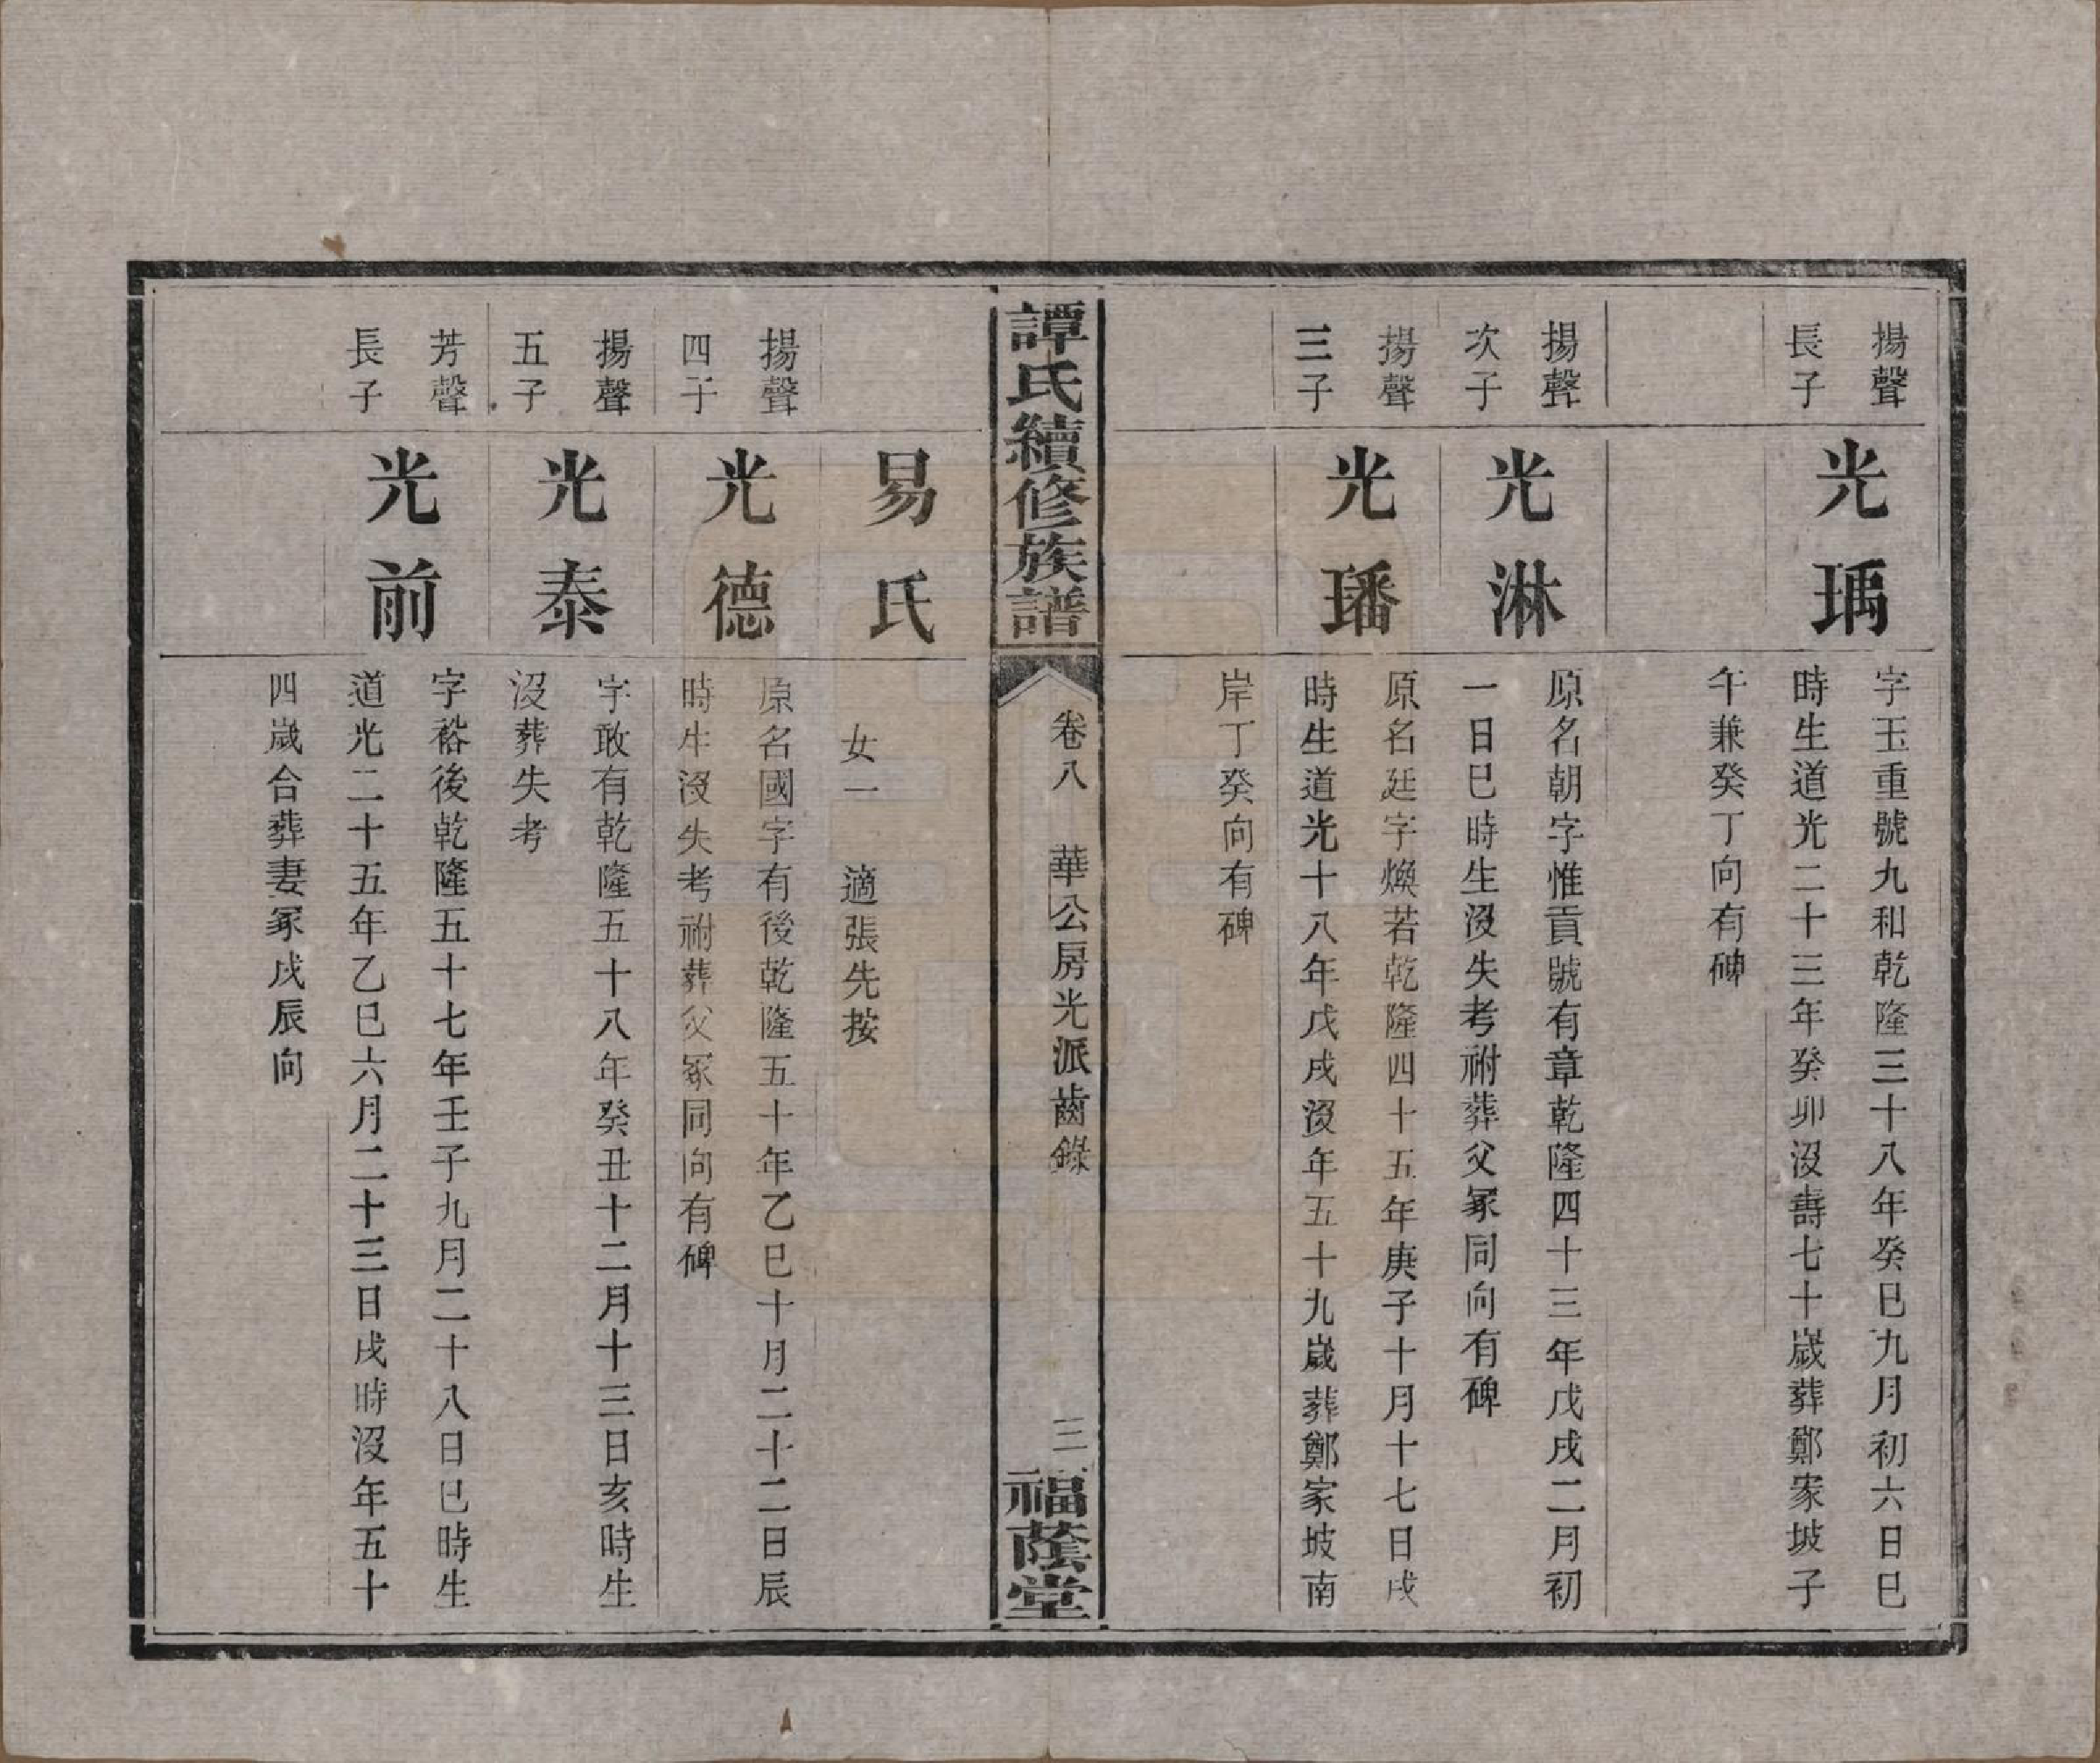 揚聲
長子
光瑀
字玉重號九和乾隆三十八年癸巳九月初六日巳
時生道光二十三年癸卯沒壽七十歲葬鄭家坡子
午兼癸丁向有碑
揚聲
次子
光淋
原名朝字惟貢號有章乾隆四十三年戊戌二月初
一日巳時生沒失考祔葬父冢同向有碑
揚聲
三子
光璠
原名廷字煥若乾隆四十五年庚子十月十七日戌
時生道光十八年戊戌沒年五十九歲葬鄭家坡南
岸丁癸向有碑
譚氏續修族譜
卷八 華公房光派齒錄
三
福蔭堂
易氏
女一 適張先按
揚聲
四子
光德
原名國字有後乾隆五十年乙巳十月二十二日辰
時生沒失考祔葬父冢同向有碑
揚聲
五子
光泰
字敢有乾隆五十八年癸丑十二月十三日亥時生
沒葬失考
芳聲
長子
光前
字裕後乾隆五十七年壬子九月二十八日巳時生
道光二十五年乙巳六月二十三日戌時沒年五十
四歲合葬妻冢戌辰向